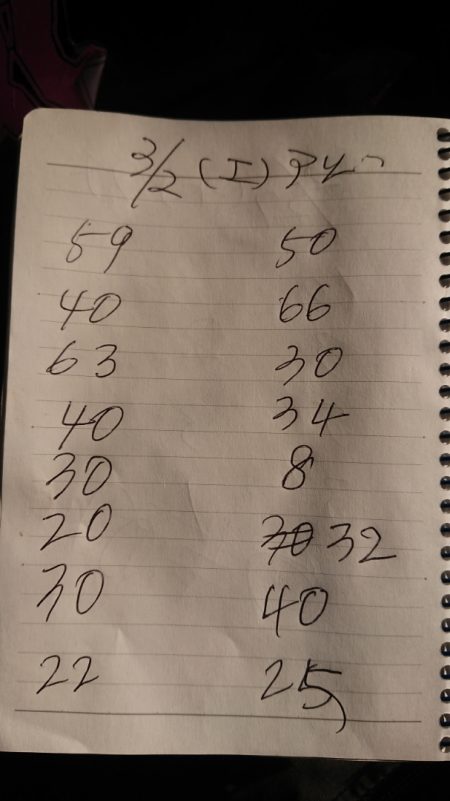 3/2 (工) アム
59 50
40 66
63 30
40 34
30 8
20 32
30 40
22 25